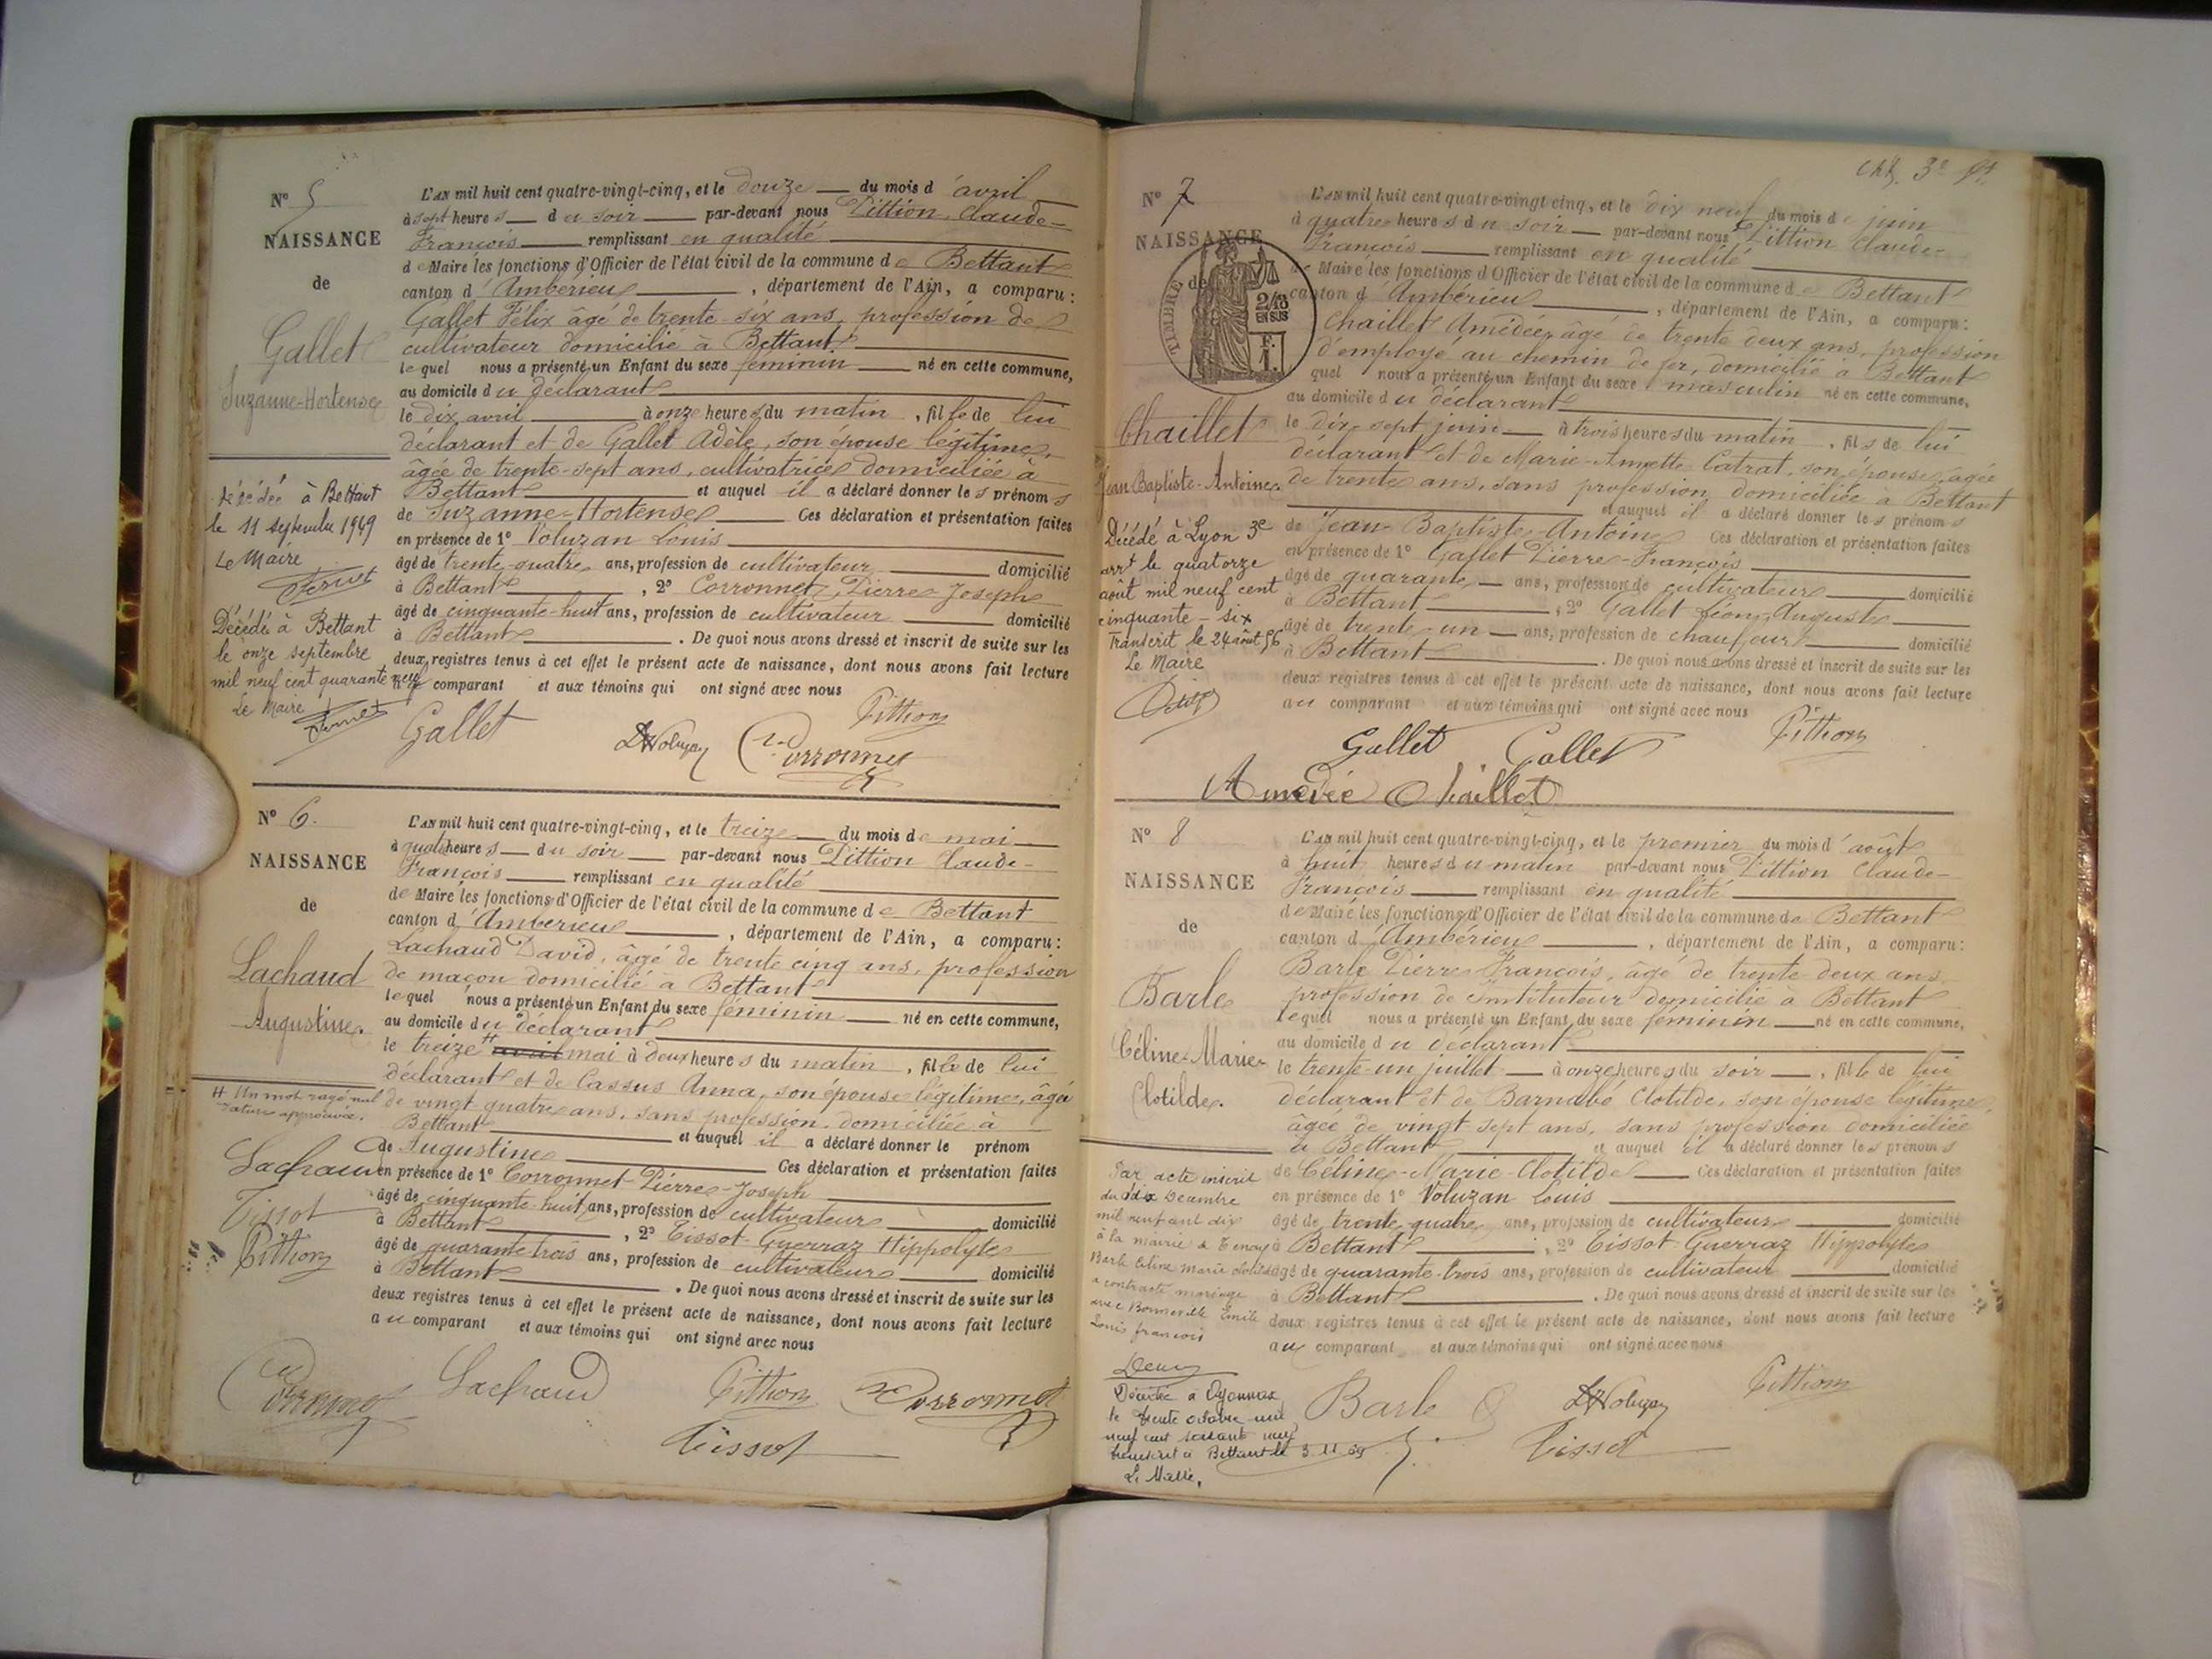 Nº 5
NAISSANCE
de
Gallet
Suzanne-Hortense
décédée à Bettant
le 11 septembre 1949
Le Maire
Décédée à Bettant
le onze septembre
mil neuf cent quarante neuf
Le Maire
L'AN mil huit cent quatre-vingt-cinq, et le douze du mois d'avril
à sept heures du soir par-devant nous Pittion Claude-
François remplissant en qualité
de Maire les fonctions d'Officier de l'état civil de la commune de Bettant
canton d'Ambérieu, département de l'Ain, a comparu :
Gallet Félix âgé de trente-six ans, profession de
cultivateur domicilié à Bettant
lequel nous a présenté un Enfant du sexe féminin né en cette commune,
au domicile du déclarant
le dix avril à onze heures du matin, fille de lui
déclarant et de Gallet Adèle, son épouse légitime,
âgée de trente-sept ans, cultivatrice domiciliée à
Bettant et auquel il a déclaré donner les prénoms
de Suzanne-Hortense Ces déclaration et présentation faites
en présence de 1º Voluzan Louis
âgé de trente-quatre ans, profession de cultivateur domicilié
à Bettant, 2º Corronnet Pierre Joseph
âgé de cinquante-huit ans, profession de cultivateur domicilié
à Bettant. De quoi nous avons dressé et inscrit de suite sur les
deux registres tenus à cet effet le présent acte de naissance, dont nous avons fait lecture
au comparant et aux témoins qui ont signé avec nous
Gallet Voluzan Corronnet Pittion
Nº 6.
NAISSANCE
de
Lachaud
Augustine.
# Un mot rayé nul
rature approuvée.
Lachaud
Tissot
Pittion
L'AN mil huit cent quatre-vingt-cinq, et le treize du mois de mai
à quatre heures du soir par-devant nous Pittion Claude-
François remplissant en qualité
de Maire les fonctions d'Officier de l'état civil de la commune de Bettant
canton d'Ambérieu, département de l'Ain, a comparu :
Lachaud David, âgé de trente cinq ans, profession
de maçon domicilié à Bettant
lequel nous a présenté un Enfant du sexe féminin né en cette commune,
au domicile du déclarant
le treize # avril mai à deux heures du matin, fille de lui
déclarant et de Cassus Anna, son épouse légitime, âgée
de vingt quatre ans, sans profession, domiciliée à
Bettant et auquel il a déclaré donner le prénom
de Augustine Ces déclaration et présentation faites
en présence de 1º Corronnet Pierre-Joseph
âgé de cinquante-huit ans, profession de cultivateur domicilié
à Bettant, 2º Tissot-Guerraz Hippolyte
âgé de quarante trois ans, profession de cultivateur domicilié
à Bettant. De quoi nous avons dressé et inscrit de suite sur les
deux registres tenus à cet effet le présent acte de naissance, dont nous avons fait lecture
au comparant et aux témoins qui ont signé avec nous
Corronnet Lachaud Pittion Corronnet
Tissot
3e
Nº 7
NAISSANCE
de
TIMBRE
2/10
EN SUS
F.
1.
Chaillet
Jean Baptiste-Antoine.
Décédé à Lyon 3e
arrt le quatorze
août mil neuf cent
cinquante-six
Transcrit le 24 août 56
Le Maire
L'AN mil huit cent quatre-vingt-cinq, et le dix neuf du mois de juin
à quatre heures du soir par-devant nous Pittion Claude-
François remplissant en qualité
de Maire les fonctions d'Officier de l'état civil de la commune de Bettant
canton d'Ambérieu, département de l'Ain, a comparu :
Chaillet Amédée, âgé de trente deux ans, profession
d'employé au chemin de fer, domicilié à Bettant
quel nous a présenté un Enfant du sexe masculin né en cette commune,
au domicile du déclarant
le dix-sept juin à trois heures du matin, fils de lui
déclarant et de Marie-Annette Catrat, son épouse, âgée
de trente ans, sans profession, domiciliée à Bettant
et auquel il a déclaré donner les prénoms
de Jean-Baptiste-Antoine Ces déclaration et présentation faites
en présence de 1º Gallet Pierre-François
âgé de quarante ans, profession de cultivateur domicilié
à Bettant, 2º Gallet Léon-Auguste
âgé de trente-un ans, profession de chauffeur domicilié
à Bettant. De quoi nous avons dressé et inscrit de suite sur les
deux registres tenus à cet effet le présent acte de naissance, dont nous avons fait lecture
au comparant et aux témoins qui ont signé avec nous
Gallet Gallet Pittion
Amédée Chaillet
Nº 8
NAISSANCE
de
Barle
Céline-Marie-
Clotilde.
Par acte inscrit
du dix Décembre
mil neuf cent dix
à la mairie de Tenay
Barle Céline Marie Clotilde
a contracté mariage
avec Bonneville Emile
Louis François
Décédée à Oyonnax
le trente octobre mil
neuf cent soixante neuf
transcrit à Bettant le 3 11 69
Le Maire,
L'AN mil huit cent quatre-vingt-cinq, et le premier du mois d'août
à huit heures du matin par-devant nous Pittion Claude-
François remplissant en qualité
de Maire les fonctions d'Officier de l'état civil de la commune de Bettant
canton d'Ambérieu, département de l'Ain, a comparu :
Barle Pierre François, âgé de trente deux ans
profession de Instituteur domicilié à Bettant
lequel nous a présenté un Enfant du sexe féminin né en cette commune,
au domicile du déclarant
le trente-un juillet à onze heures du soir, fille de lui
déclarant et de Barnabé Clotilde, son épouse légitime,
âgée de vingt sept ans, sans profession domiciliée
à Bettant et auquel il a déclaré donner les prénoms
de Céline-Marie-Clotilde Ces déclaration et présentation faites
en présence de 1º Voluzan Louis
âgé de trente-quatre ans, profession de cultivateur domicilié
à Bettant, 2º Tissot-Guerraz Hippolyte
âgé de quarante-trois ans, profession de cultivateur domicilié
à Bettant. De quoi nous avons dressé et inscrit de suite sur les
deux registres tenus à cet effet le présent acte de naissance, dont nous avons fait lecture
au comparant et aux témoins qui ont signé avec nous
Barle Voluzan Pittion
Tissot